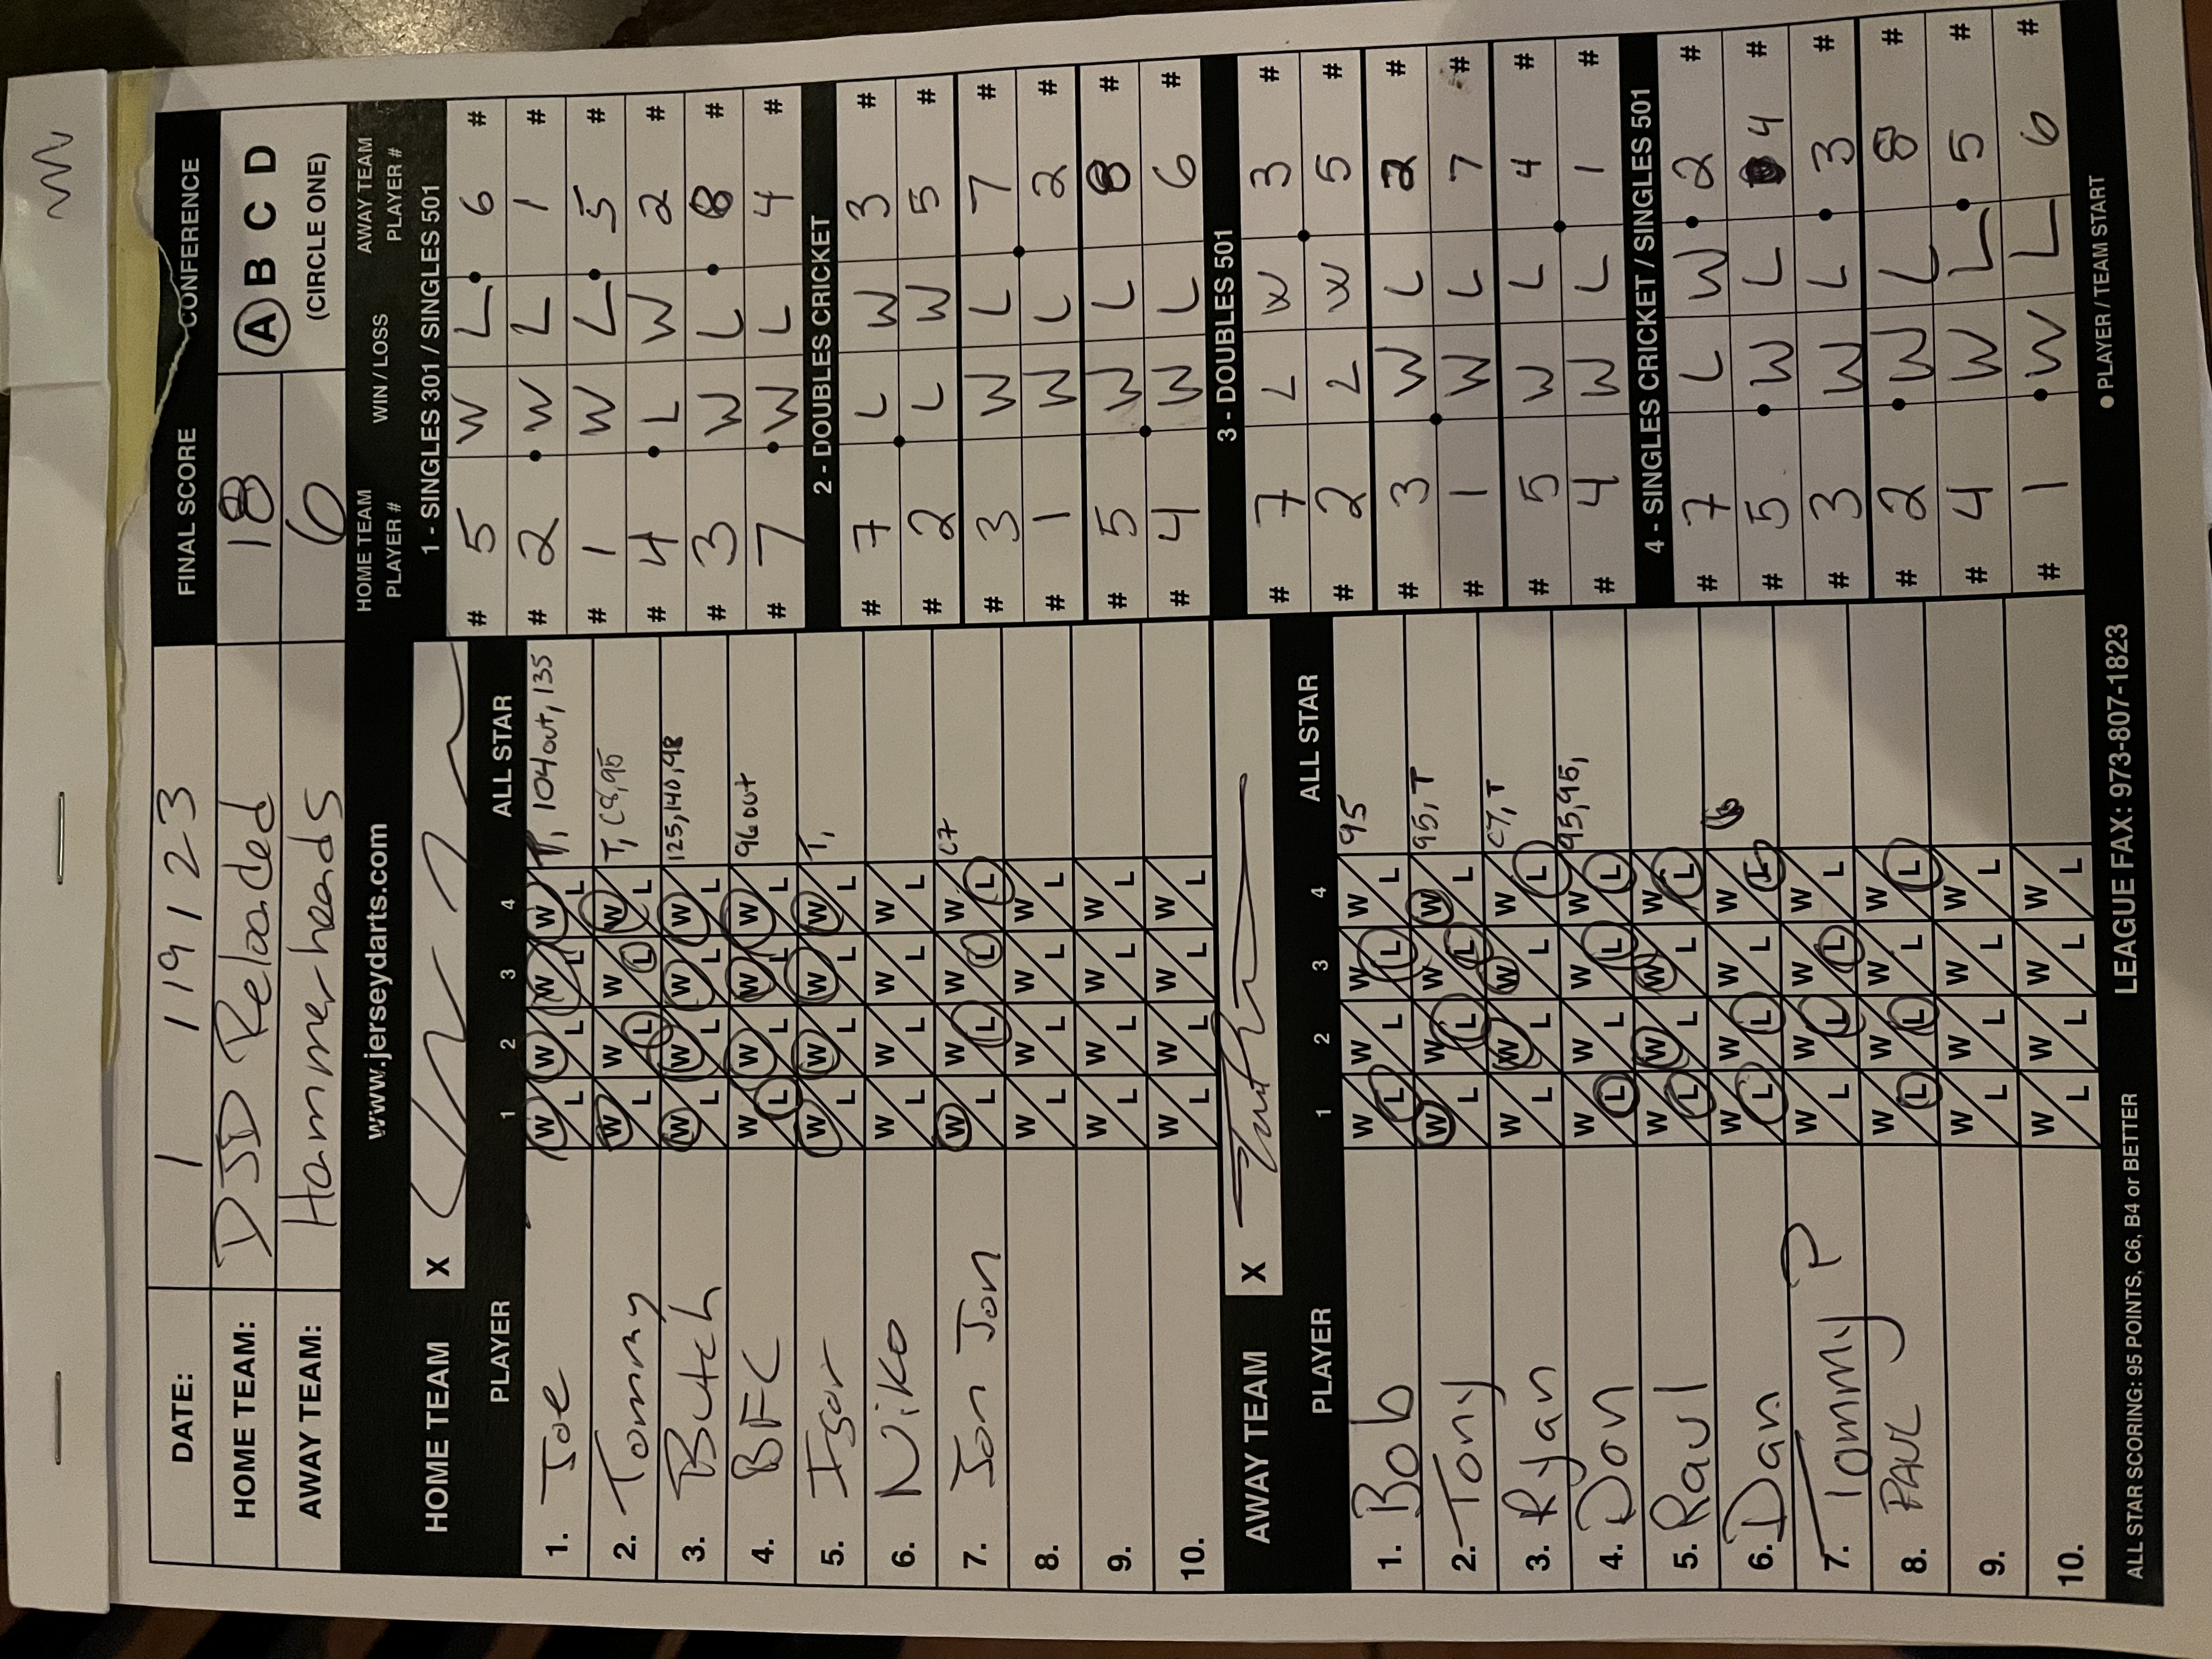 DATE: 1 19 23 FINAL SCORE CONFERENCE
HOME TEAM: DSD Reloaded 18 A B C D
AWAY TEAM: Hammerheads 6 (CIRCLE ONE)
www.jerseydarts.com
HOME TEAM X
PLAYER 1 2 3 4 ALL STAR
1. Joe W L W L W L W L T, 104out, 135
2. Tommy W L W L W L W L T, C8, 95
3. Butch W L W L W L W L 125, 140, 98
4. BFC W L W L W L W L 96out
5. Igor W L W L W L W L T,
6. Niko W L W L W L W L
7. Jon Jon W L W L W L W L C7
8. W L W L W L W L
9. W L W L W L W L
10. W L W L W L W L
AWAY TEAM X
PLAYER 1 2 3 4 ALL STAR
1. Bob W L W L W L W L 95
2. Tony W L W L W L W L 95, T
3. Ryan W L W L W L W L C7, T
4. Don W L W L W L W L 95, 95,
5. Raul W L W L W L W L
6. Dan W L W L W L W L
7. Tommy P W L W L W L W L
8. PAUL W L W L W L W L
9. W L W L W L W L
10. W L W L W L W L
HOME TEAM PLAYER # WIN / LOSS AWAY TEAM PLAYER #
1 - SINGLES 301 / SINGLES 501
# 5 W L 6 #
# 2 W L 1 #
# 1 W L 5 #
# 4 L W 2 #
# 3 W L 8 #
# 7 W L 4 #
2 - DOUBLES CRICKET
# 7 L W 3 #
# 2 L W 5 #
# 3 W L 7 #
# 1 W L 2 #
# 5 W L 8 #
# 4 W L 6 #
3 - DOUBLES 501
# 7 L W 3 #
# 2 L W 5 #
# 3 W L 2 #
# 1 W L 7 #
# 5 W L 4 #
# 4 W L 1 #
4 - SINGLES CRICKET / SINGLES 501
# 7 L W 2 #
# 5 W L 4 #
# 3 W L 3 #
# 2 W L 8 #
# 4 W L 5 #
# 1 W L 6 #
● PLAYER / TEAM START
ALL STAR SCORING: 95 POINTS, C6, B4 or BETTER LEAGUE FAX: 973-807-1823